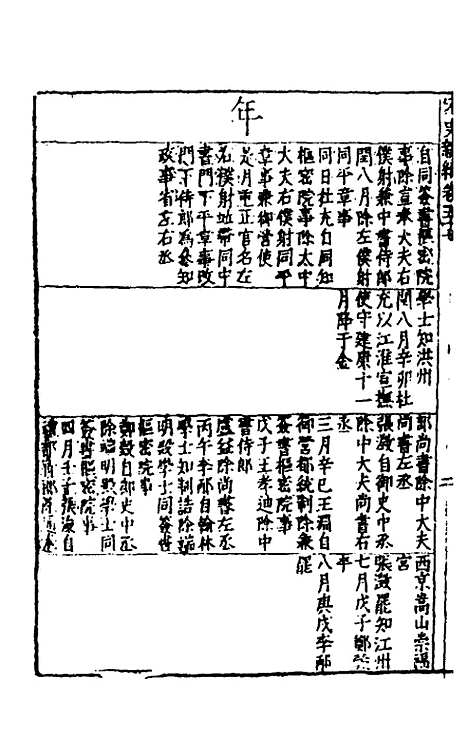 宋史新編卷五十
年
自同簽書樞密院
事除宣奉大夫右
僕射兼中書侍郎
閏八月除左僕射
同平章事
同日杜充自同知
樞密院事除太中
大夫右僕射同平
章事兼御營使
是月正官名左
右僕射並帶同中
書門下平章事改
門下侍郎爲參知
政事省左右丞
學士知洪州
閏八月辛卯杜
充以江淮宣撫
使守建康十一
月降于金
部尚書除中大夫
尚書左丞
張澂自御史中丞
除中大夫尚書右
丞
三月辛巳王淵自
御營都統制除兼
簽書樞密院事
戊子王孝迪除中
書侍郎
盧益除尚書左丞
丙午李邴自翰林
學士知制誥除端
明殿學士同簽書
樞密院事
鄭瑴自御史中丞
除端明殿學士同
簽書樞密院事
四月壬子張浚自
禮部侍郎
西京嵩山崇福
宮
張澂罷知江州
七月戊子鄭瑴
卒
八月庚戌李邴
罷
二